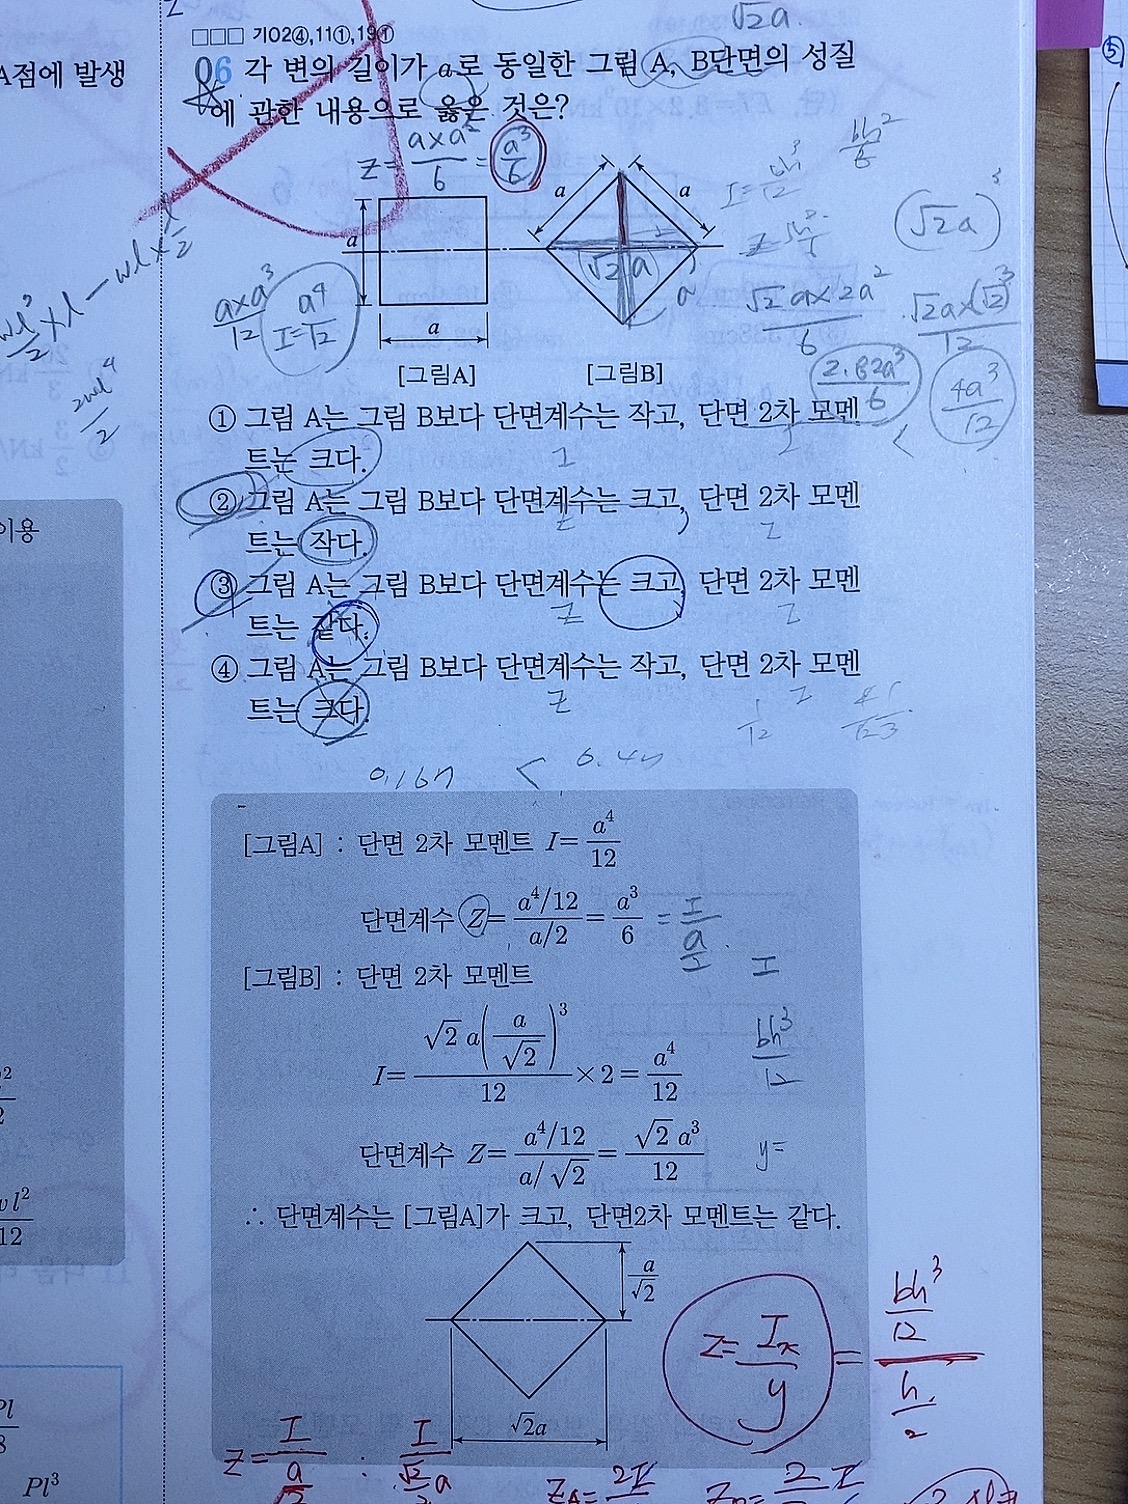 √2a.
□□□ 기02④,11①,19①
A점에 발생
06 각 변의 길이가 a로 동일한 그림 A, B단면의 성질
에 관한 내용으로 옳은 것은?
Z = a×a²/6 = a³/6
bh²/6
a
a
a
a
√2a
(√2a)³
a×a³/12
I=a⁴/12
√2a×2a²/6
√2a×(√2)³/12
2.82a³/6
4a³/12
[그림A]
[그림B]
① 그림 A는 그림 B보다 단면계수는 작고, 단면 2차 모멘
트는 크다.
② 그림 A는 그림 B보다 단면계수는 크고, 단면 2차 모멘
트는 작다.
이용
③ 그림 A는 그림 B보다 단면계수는 크고, 단면 2차 모멘
트는 같다.
④ 그림 A는 그림 B보다 단면계수는 작고, 단면 2차 모멘
트는 크다.
[그림A] : 단면 2차 모멘트 I= a⁴/12
단면계수 Z= (a⁴/12)/(a/2) = a³/6
[그림B] : 단면 2차 모멘트
I= √2 a(a/√2)³/12 ×2= a⁴/12
bh³/12
단면계수 Z= (a⁴/12)/(a/√2) = √2 a³/12
y=
∴ 단면계수는 [그림A]가 크고, 단면2차 모멘트는 같다.
a/√2
√2a
Z= Ix/y = (bh³/12)/(h/2)
Pl³